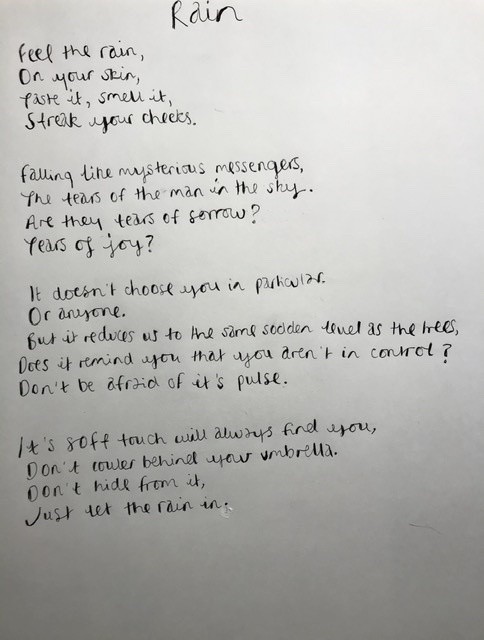 Rain
Feel the rain,
On your skin,
Taste it, smell it,
Streak your cheeks.
Falling like mysterious messengers,
The tears of the man in the sky.
Are they tears of sorrow?
Tears of joy?
It doesn't choose you in particular.
Or anyone.
But it reduces us to the same sodden level as the trees,
Does it remind you that you aren't in control?
Don't be afraid of it's pulse.
It's soft touch will always find you,
Don't cower behind your umbrella.
Don't hide from it,
Just let the rain in.